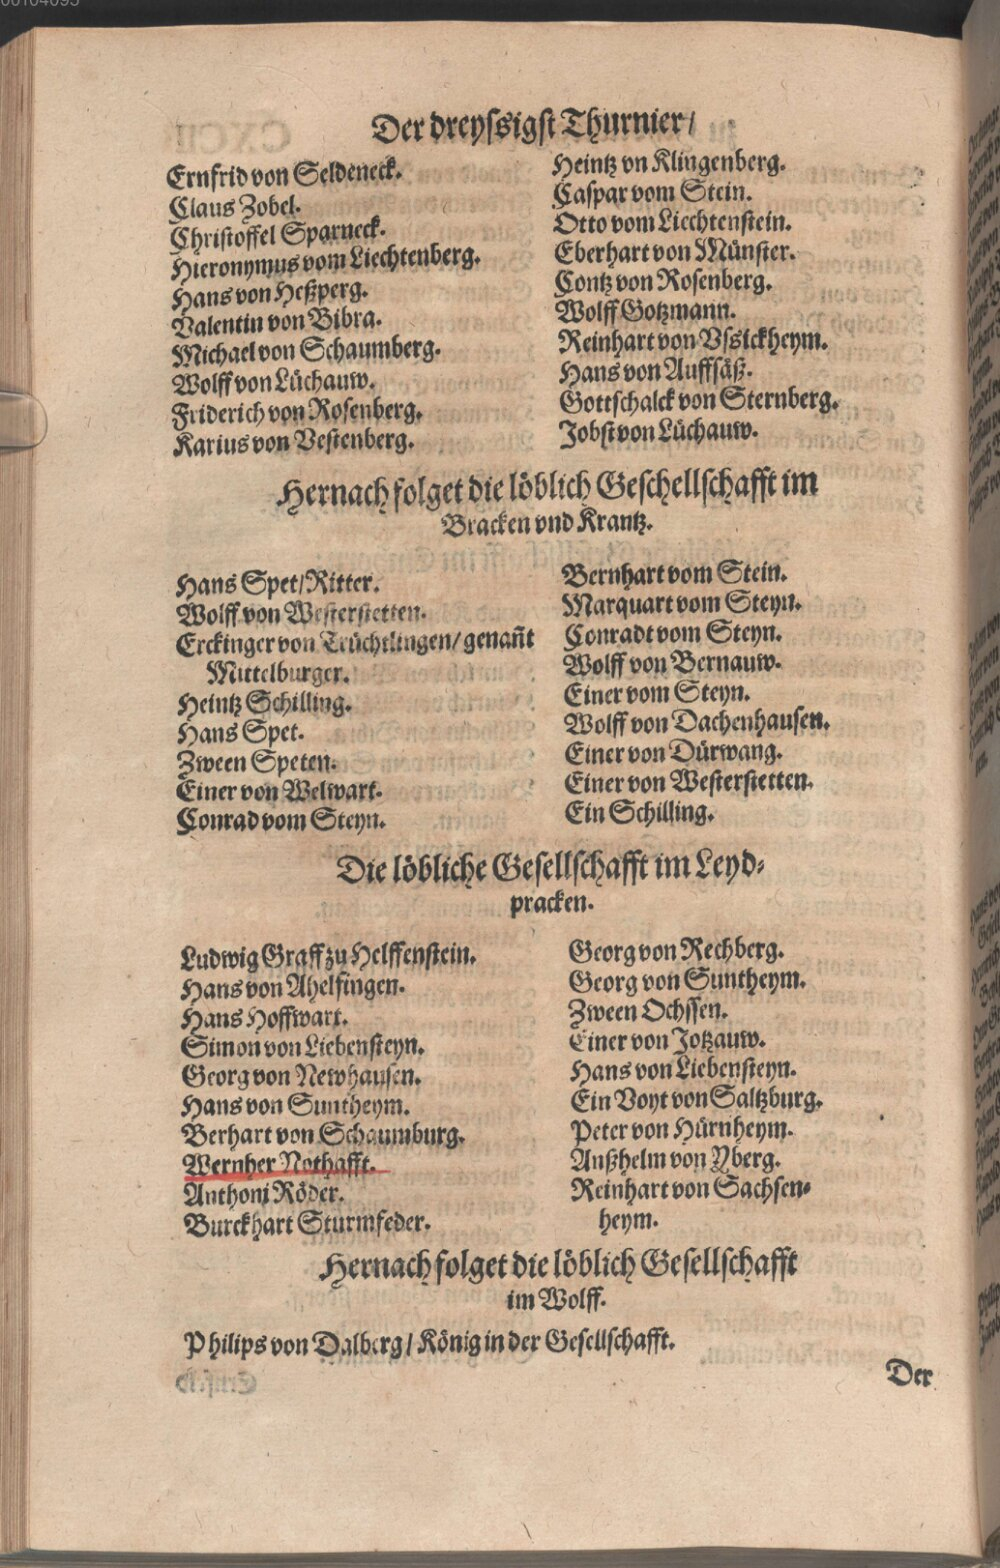 Der dreyssigst Thurnier/
Ernfrid von Seldeneck.
Claus Zobel.
Christoffel Sparneck.
Hieronymus vom Liechtenberg.
Hans von Heßperg.
Valentin von Bibra.
Michael von Schaumberg.
Wolff von Lüchauw.
Friderich von Rosenberg.
Karius von Vestenberg.
Heintz vn Klingenberg.
Caspar vom Stein.
Otto vom Liechtenstein.
Eberhart von Münster.
Contz von Rosenberg.
Wolff Gotzmann.
Reinhart von Vssickheym.
Hans von Auffsäß.
Gottschalck von Sternberg.
Jobst von Lüchauw.
Hernach folget die löblich Geschellschafft im
Bracken vnd Krantz.
Hans Spet/Ritter.
Wolff von Westerstetten.
Erckinger von Trüchtlingen/genañt
Mittelburger.
Heintz Schilling.
Hans Spet.
Zween Speten.
Einer von Welwart.
Conrad vom Steyn.
Bernhart vom Stein.
Marquart vom Steyn.
Conradt vom Steyn.
Wolff von Bernauw.
Einer vom Steyn.
Wolff von Dachenhausen.
Einer von Dürwang.
Einer von Westerstetten.
Ein Schilling.
Die löbliche Gesellschafft im Leyd-
pracken.
Ludwig Graff zu Helffenstein.
Hans von Ahelfingen.
Hans Hoffwart.
Simon von Liebensteyn.
Georg von Newhausen.
Hans von Suntheym.
Berhart von Schaumburg.
Wernher Nothafft.
Anthoni Röder.
Burckhart Sturmfeder.
Georg von Rechberg.
Georg von Suntheym.
Zween Ochssen.
Einer von Jotzauw.
Hans von Liebensteyn.
Ein Voyt von Saltzburg.
Peter von Hürnheym.
Anßhelm von Yberg.
Reinhart von Sachsen-
heym.
Hernach folget die löblich Gesellschafft
im Wolff.
Philips von Dalberg/König in der Gesellschafft.
Der